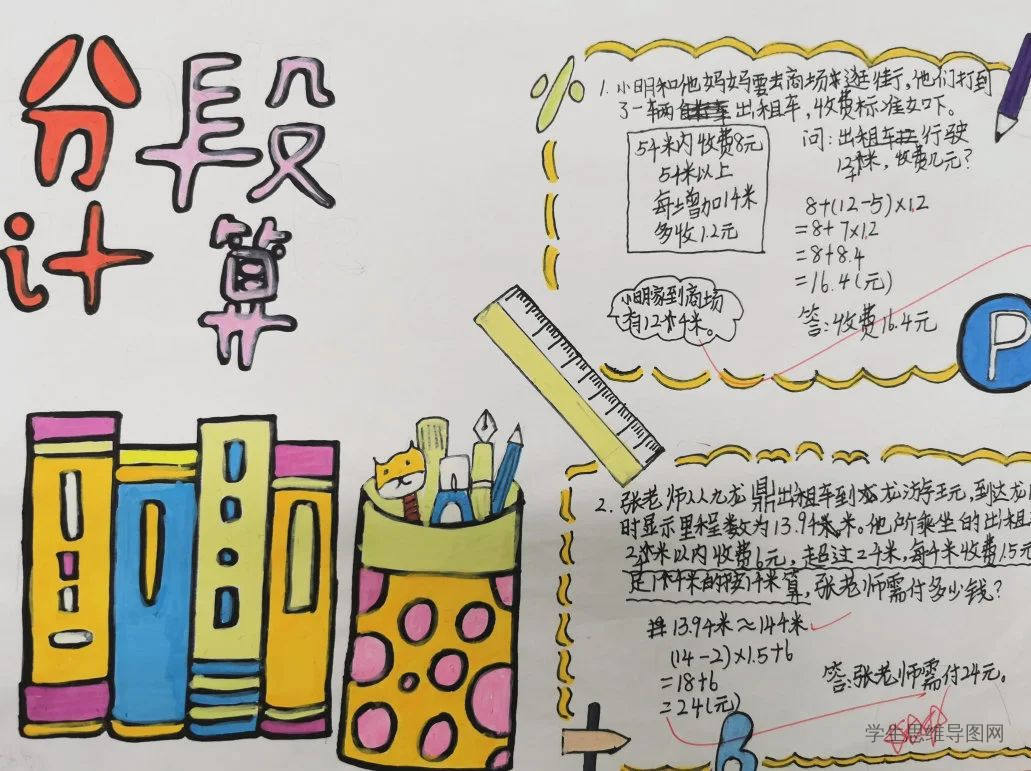 分段
计算
1. 小明和他妈妈要去商场逛街,他们打到
了一辆出租车,收费标准如下。
5千米内收费8元
5千米以上
每增加1千米
多收1.2元
问:出租车行驶
12千米,收费几元?
8+(12-5)×1.2
=8+7×1.2
=8+8.4
=16.4(元)
答:收费16.4元
小明家到商场
有12千米。
P
2. 张老师从九龙鼎出租车到龙游王元,到达龙
时显示里程数为13.9千米。他所乘坐的出租
2千米以内收费6元,超过2千米,每千米收费1.5元
足1千米的按1千米算,张老师需付多少钱?
13.9千米≈14千米
(14-2)×1.5+6
=18+6
=24(元)
答:张老师需付24元。
学生思维导图网